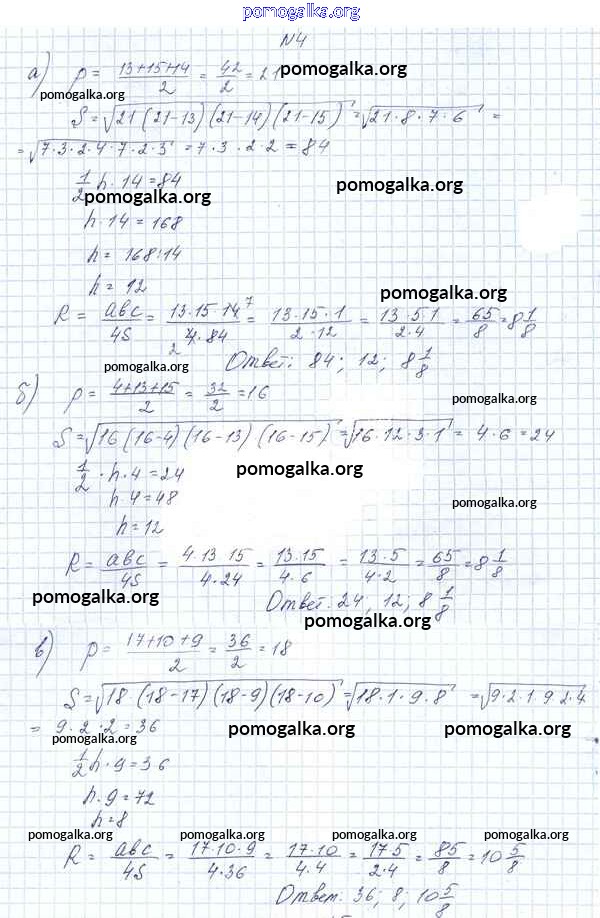 pomogalka.org
№4
а) p = (13+15+14)/2 = 42/2 = 21 pomogalka.org
pomogalka.org
S = √(21 (21-13) (21-14) (21-15)) = √(21·8·7·6) =
= √(7·3·2·4·7·2·3) = 7·3·2·2 = 84
1/2 h·14 = 84
pomogalka.org pomogalka.org
h·14 = 168
h = 168:14
h = 12
pomogalka.org
R = abc/4S = 13·15·14 7/2 4·84 = 13·15·1/2·12 = 13·5 1/2·4 = 65/8 = 8 1/8
pomogalka.org Ответ: 84; 12; 8 1/8
б) p = (4+13+15)/2 = 32/2 = 16 pomogalka.org
S = √(16 (16-4) (16-13) (16-15)) = √(16·12·3·1) = 4·6 = 24
1/2 · h·4 = 24 pomogalka.org
h·4 = 48 pomogalka.org
h = 12
R = abc/4S = 4·13·15/4·24 = 13·15/4·6 = 13·5/4·2 = 65/8 = 8 1/8
pomogalka.org Ответ: 24; 12; 8 1/8
pomogalka.org
в) p = (17+10+9)/2 = 36/2 = 18
S = √(18·(18-17) (18-9) (18-10)) = √(18·1·9·8) = √(9·2·1·9·2·4)
= 9·2·2 = 36 pomogalka.org pomogalka.org
pomogalka.org
1/2 h·9 = 36
h·9 = 72
h = 8
pomogalka.org pomogalka.org pomogalka.org pomogalka.org
R = abc/4S = 17·10·9/4·36 = 17·10/4·4 = 17·5/2·4 = 85/8 = 10 5/8
Ответ: 36; 8; 10 5/8